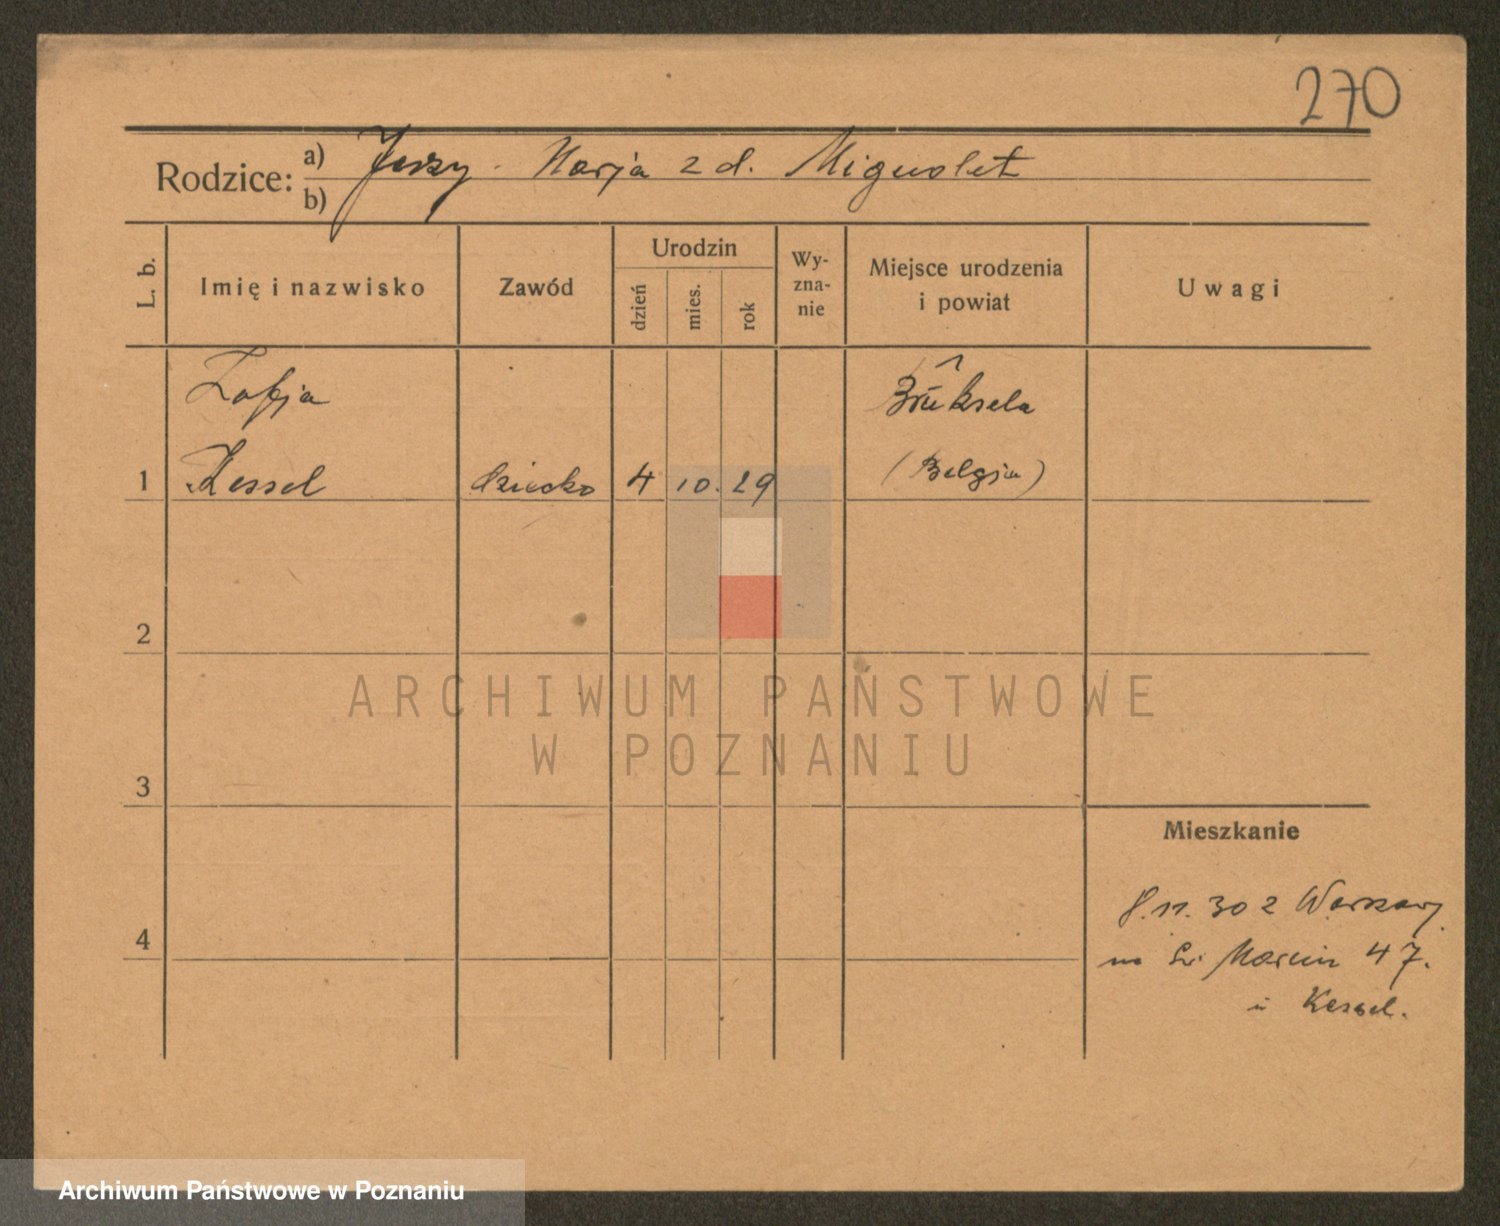 270
Rodzice: a) Jerzy. Marja z d. Mignolet
b)
L. b.
Imię i nazwisko
Zawód
Urodzin
dzień
mies.
rok
Wy-
zna-
nie
Miejsce urodzenia
i powiat
Uwagi
Zofja
Brūksela
1 Kessel dziecko 4 10. 29 (Belgja)
2
3
4
ARCHIWUM PAŃSTWOWE
W POZNANIU
Mieszkanie
8.11.30 z Warszawy
na Św. Marcin 47.
u Kessel.
Archiwum Państwowe w Poznaniu